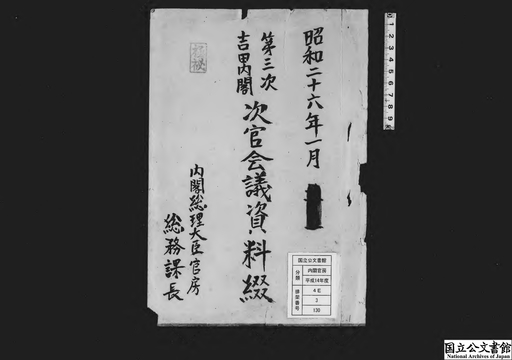 昭和二十六年一月
第三次
吉田内閣
次官会議資料綴
内閣総理大臣官房
総務課長
国立公文書館
分類
内閣官房
平成14年度
4 E
3
130
排架番号
0 1 2 3 4 5 6 7 8 9
国立公文書館
National Archives of Japan